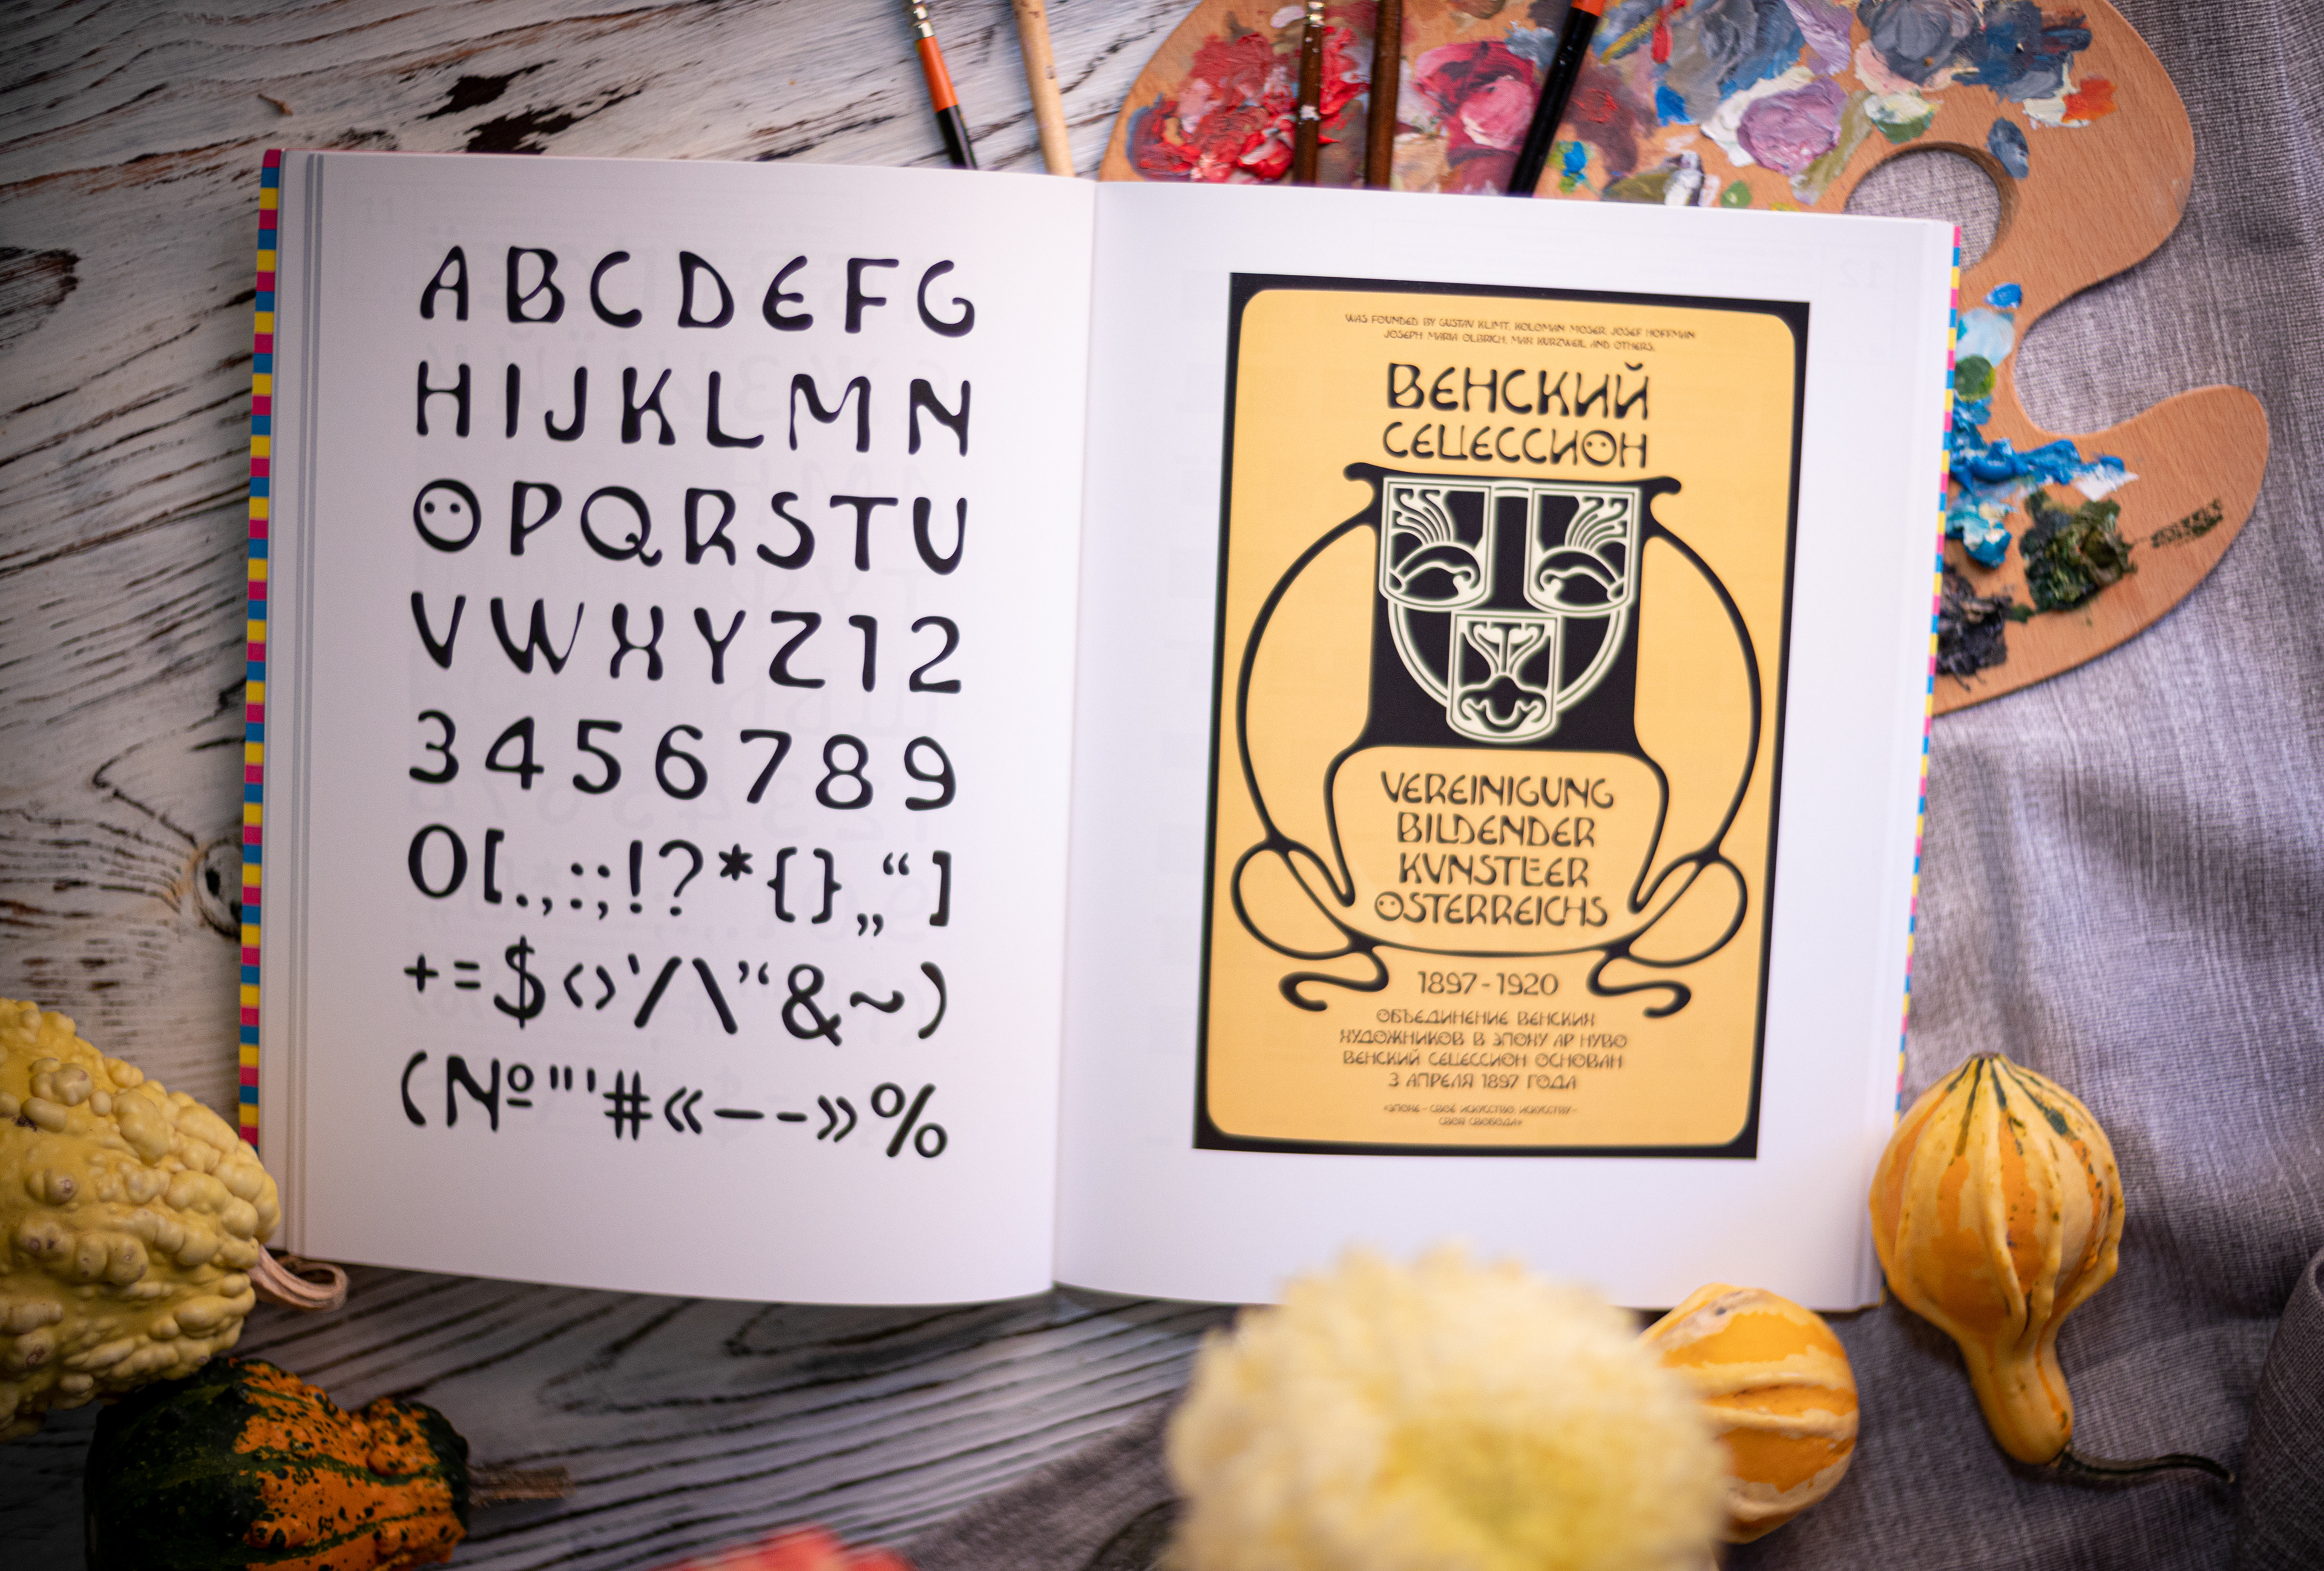 A B C D E F G
H I J K L M N
O P Q R S T U
V W X Y Z 1 2
3 4 5 6 7 8 9
0 [ . , : ; ! ? * { } „ “ ]
+ = $ ‹ › ‘ / \ ” “ & ~ )
( № " ' # « — - » %
WAS FOUNDED BY GUSTAV KLIMT, KOLOMAN MOSER, JOSEF HOFFMAN
JOSEPH MARIA OLBRICH, MAX KURZWEIL AND OTHERS.
ВЕНСКИЙ
СЕЦЕССИОН
VEREINIGUNG
BILDENDER
KVNSTLER
OSTERREICHS
1897-1920
ОБЪЕДИНЕНИЕ ВЕНСКИХ
ХУДОЖНИКОВ В ЭПОХУ АР НУВО
ВЕНСКИЙ СЕЦЕССИОН ОСНОВАН
3 АПРЕЛЯ 1897 ГОДА
«ЭПОХЕ – СВОЁ ИСКУССТВО, ИСКУССТВУ –
СВОЯ СВОБОДА»